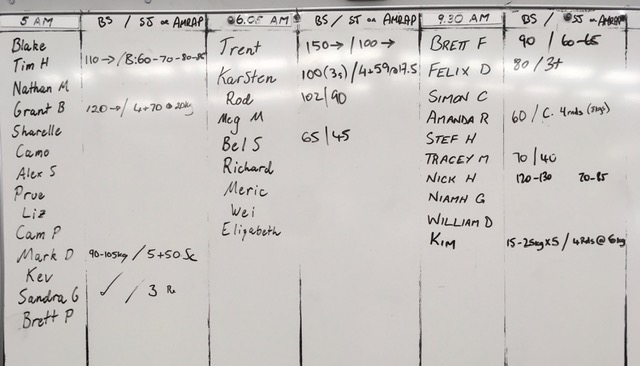 5 AM BS / SJ or AMRAP
Blake
Tim H 110→ / B:60-70-80-85
Nathan M
Grant B 120→ / 4+70 @ 20kg
Sharelle
Camo
Alex S
Prue
Liz
Cam P
Mark D 90-105kg / 5+50 Sc
Kev
Sandra G ✓ / 3 Rx
Brett P
6.05 AM BS / SJ or AMRAP
Trent 150→ / 100→
Karsten 100(3s) / 4+59@17.5
Rod 102/90
Meg M
Bel S 65/45
Richard
Meric
Wei
Elizabeth
9.30 AM BS / SJ or AMRAP
BRETT F 90 / 60-65
FELIX D 80 / 3+
SIMON C
AMANDA R 60 / C. 4rnds
STEF H
TRACEY M 70/40
NICK H 120-130 70-85
NIAMH G
WILLIAM D
KIM 15-25kg x5 / 4Rds@6kg